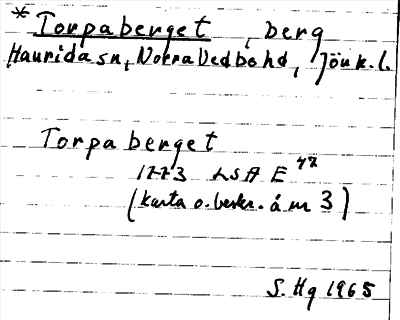 * Torpaberget, berg
Haurida sn, Norra Vedbo hd, Jönk. l.
Torpaberget
1773 LSA E 47
(karta o. beskr. å m 3)
S. Hg 1965